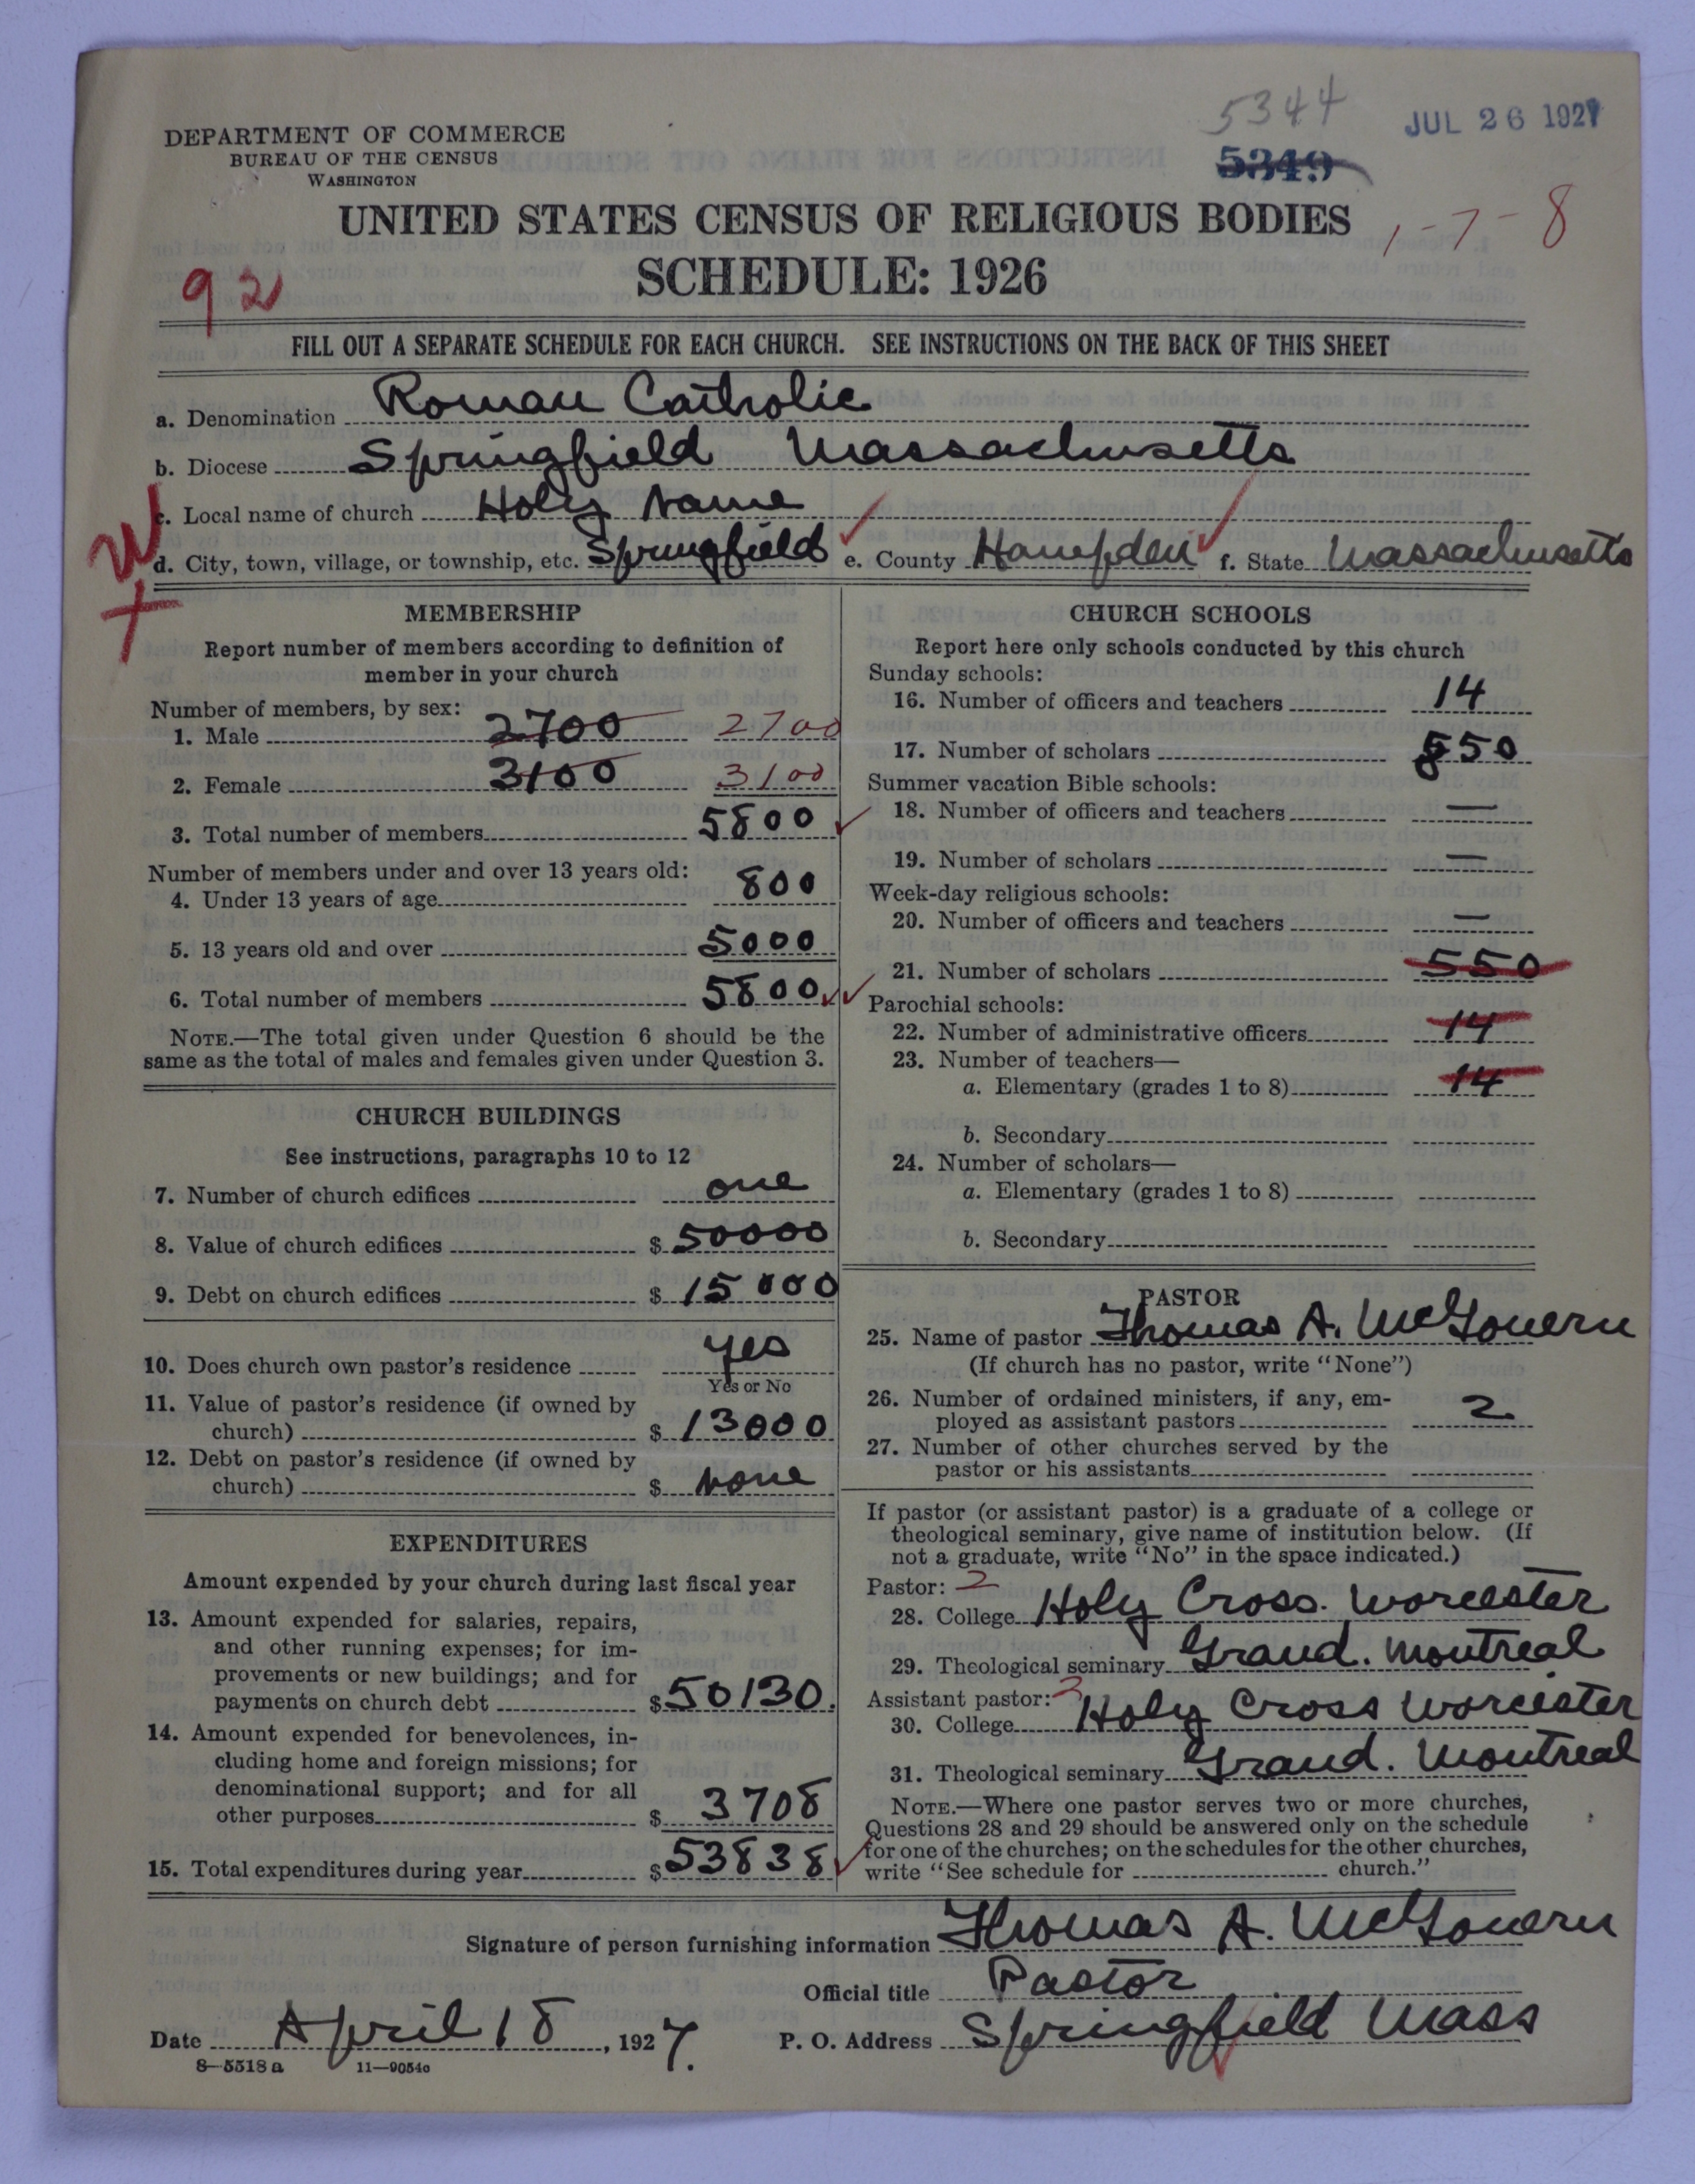 5344
JUL 26 1927
5349
DEPARTMENT OF COMMERCE
BUREAU OF THE CENSUS
WASHINGTON
UNITED STATES CENSUS OF RELIGIOUS BODIES
1-7-8
SCHEDULE: 1926
92
FILL OUT A SEPARATE SCHEDULE FOR EACH CHURCH. SEE INSTRUCTIONS ON THE BACK OF THIS SHEET
a. Denomination Roman Catholic
b. Diocese Springfield Massachusetts
c. Local name of church Holy Name
d. City, town, village, or township, etc. Springfield e. County Hampden f. State Massachusetts
MEMBERSHIP
Report number of members according to definition of
member in your church
Number of members, by sex:
1. Male 2700 2700
2. Female 3100 3100
3. Total number of members 5800
Number of members under and over 13 years old:
4. Under 13 years of age 800
5. 13 years old and over 5000
6. Total number of members 5800
NOTE.—The total given under Question 6 should be the
same as the total of males and females given under Question 3.
CHURCH BUILDINGS
See instructions, paragraphs 10 to 12
7. Number of church edifices one
8. Value of church edifices $ 50000
9. Debt on church edifices $ 15000
10. Does church own pastor's residence yes
Yes or No
11. Value of pastor's residence (if owned by
church) $ 13000
12. Debt on pastor's residence (if owned by
church) $ none
EXPENDITURES
Amount expended by your church during last fiscal year
13. Amount expended for salaries, repairs,
and other running expenses; for im-
provements or new buildings; and for
payments on church debt $ 50130.
14. Amount expended for benevolences, in-
cluding home and foreign missions; for
denominational support; and for all
other purposes $ 3708
15. Total expenditures during year $ 53838
CHURCH SCHOOLS
Report here only schools conducted by this church
Sunday schools:
16. Number of officers and teachers 14
17. Number of scholars 550
Summer vacation Bible schools:
18. Number of officers and teachers —
19. Number of scholars —
Week-day religious schools:
20. Number of officers and teachers —
21. Number of scholars 550
Parochial schools:
22. Number of administrative officers 14
23. Number of teachers—
a. Elementary (grades 1 to 8) 14
b. Secondary
24. Number of scholars—
a. Elementary (grades 1 to 8)
b. Secondary
PASTOR
25. Name of pastor Thomas A. McGovern
(If church has no pastor, write "None")
26. Number of ordained ministers, if any, em-
ployed as assistant pastors 2
27. Number of other churches served by the
pastor or his assistants
If pastor (or assistant pastor) is a graduate of a college or
theological seminary, give name of institution below. (If
not a graduate, write "No" in the space indicated.)
Pastor: 2
28. College Holy Cross. Worcester
29. Theological seminary Grand. Montreal
Assistant pastor:
30. College Holy Cross Worcester
31. Theological seminary Grand. Montreal
NOTE.—Where one pastor serves two or more churches,
Questions 28 and 29 should be answered only on the schedule
for one of the churches; on the schedules for the other churches,
write "See schedule for church."
Signature of person furnishing information Thomas A. McGovern
Official title Pastor
Date April 18, 1927. P. O. Address Springfield Mass
8—5518 a 11—9054a